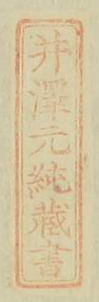 井澤元純藏書